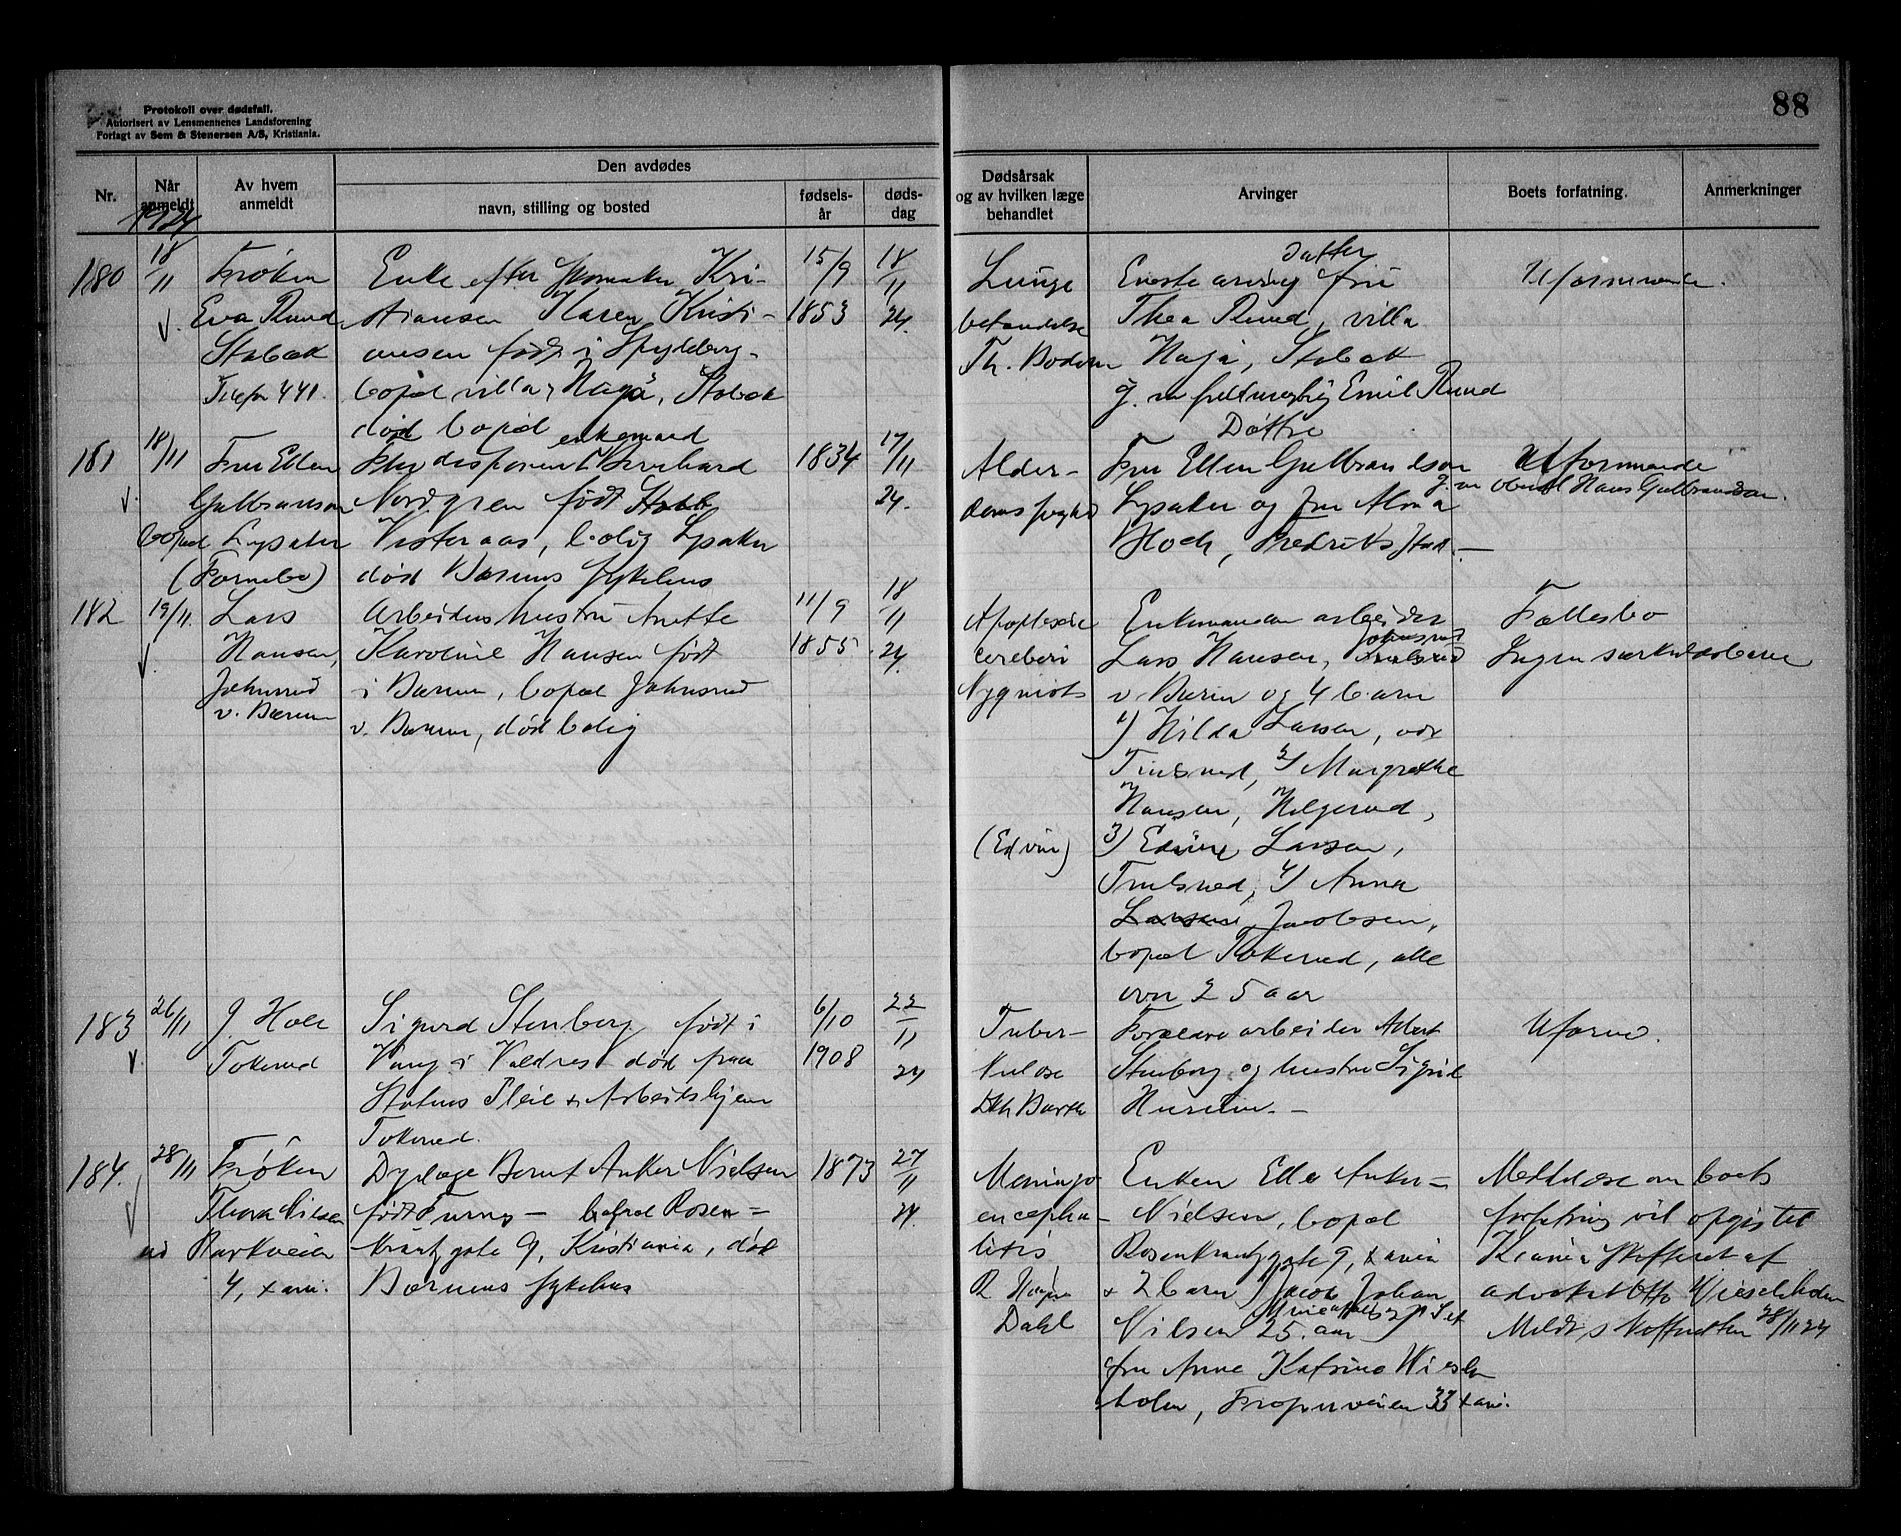 Protokoll over dødsfall.
Autorisert av Lensmennenes Landsforening
Forlagt av Sem & Stenersen A/S, Kristiania.
88
Nr.
Når anmeldt
Av hvem anmeldt
Den avdødes
navn, stilling og bosted
fødsels-år
døds-dag
Dødsårsak og av hvilken læge behandlet
Arvinger
Boets forfatning.
Anmerkninger
1924
180
18/11
Frøken
Eva Ruud
Stabæk
Telefon 441.
Enke efter skomaker Kri-
stiansen Karen Kristi-
ansen født i Spydeberg
bopæl villa Haga, Stabæk
død bopæl
15/9
1853
18/11
24.
Lunge
betændelse
Th. Bodom
Datter
Eneste arving fru
Thea Ruud, villa
Haga, Stabæk
g. m. Emil Ruud
Uformuende.
181
18/11
Fru Ellen
Gulbranson
bopæl Lysaker
(Fornebo)
enkemand
disponent Bernhard
Nordgren født
Vesteraas, bolig Lysaker
død Bærums sykehus
1834
17/11
24.
Alder-
domssvakhet
Døttre
Fru Ellen Gulbrandson
g. m. oberstl Hans Gulbrandson.
Lysaker og fru Alma
Hoch, Fredriksstad.
Uformuende
182
19/11.
Lars
Hansen,
Johnsrud
v. Bærum
Arbeiderhustru Anette
Karoline Hansen født
i Bærum, bopæl Johnsrud
v. Bærum, død bolig
11/9
1855
18/11
24.
Apoplexia
cerebri
Nyqvist
Enkemanden arbeider
Lars Hansen, Johnsrud
v. Bærum og 4 barn
1) Hilda Larsen, adr
Trulsrud, 2) Margrethe
Hansen, Helgerud,
(Edvin)
3) Edvine Larsen,
Trulsrud, 4) Anna
Larsen, Jacobsen,
bopæl Tokerud, alle
over 25 aar
Fællesbo
Ingen særkuldsbarn
183
26/11
J. Hole
Tokerud
Sigurd Stenberg født i
Vang i Valdres død paa
Statens Pleie & Arbeidshjem
Tokerud.
6/10
1908
22/11
24
Tuber-
kulose
Dr Barth
Forældre arbeider Albert
Stenberg og hustru Sigrid
Uform.
184.
28/11
Frøken
Thora Nilsen
Parkveien
4, Xania.
Dyrlæge Bernt Anker Nielsen
født Furnes - bopæl Rosen-
krantzgate 9, Kristiania, død
Bærums sykehus
1873
27/11
24.
Meningo
encepha-
litis
Dahl
Enken Elle Anker-
Nielsen, bopæl
Rosenkrantzgate 9, Xania
& 2 barn Jacob Johan
Nilsen 25 aar
fru Anne Katrine Wiesel-
holm, Frognerveien 33 Xania.
Meddelelse om boets
forfatning vil opgis til
Xania skifteret af
advokat Otto Wieselholm
Meldt skifteretten 28/11 24